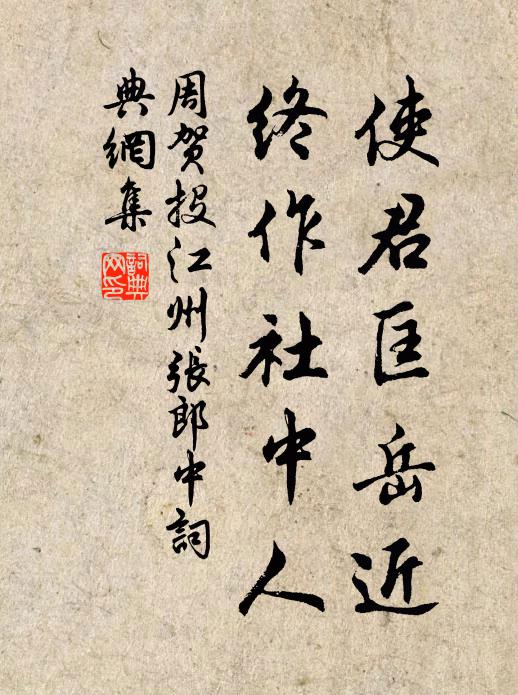 使君匡岳近
终作社中人
周贺投江州張郎中詞
典網集
詞典
网印